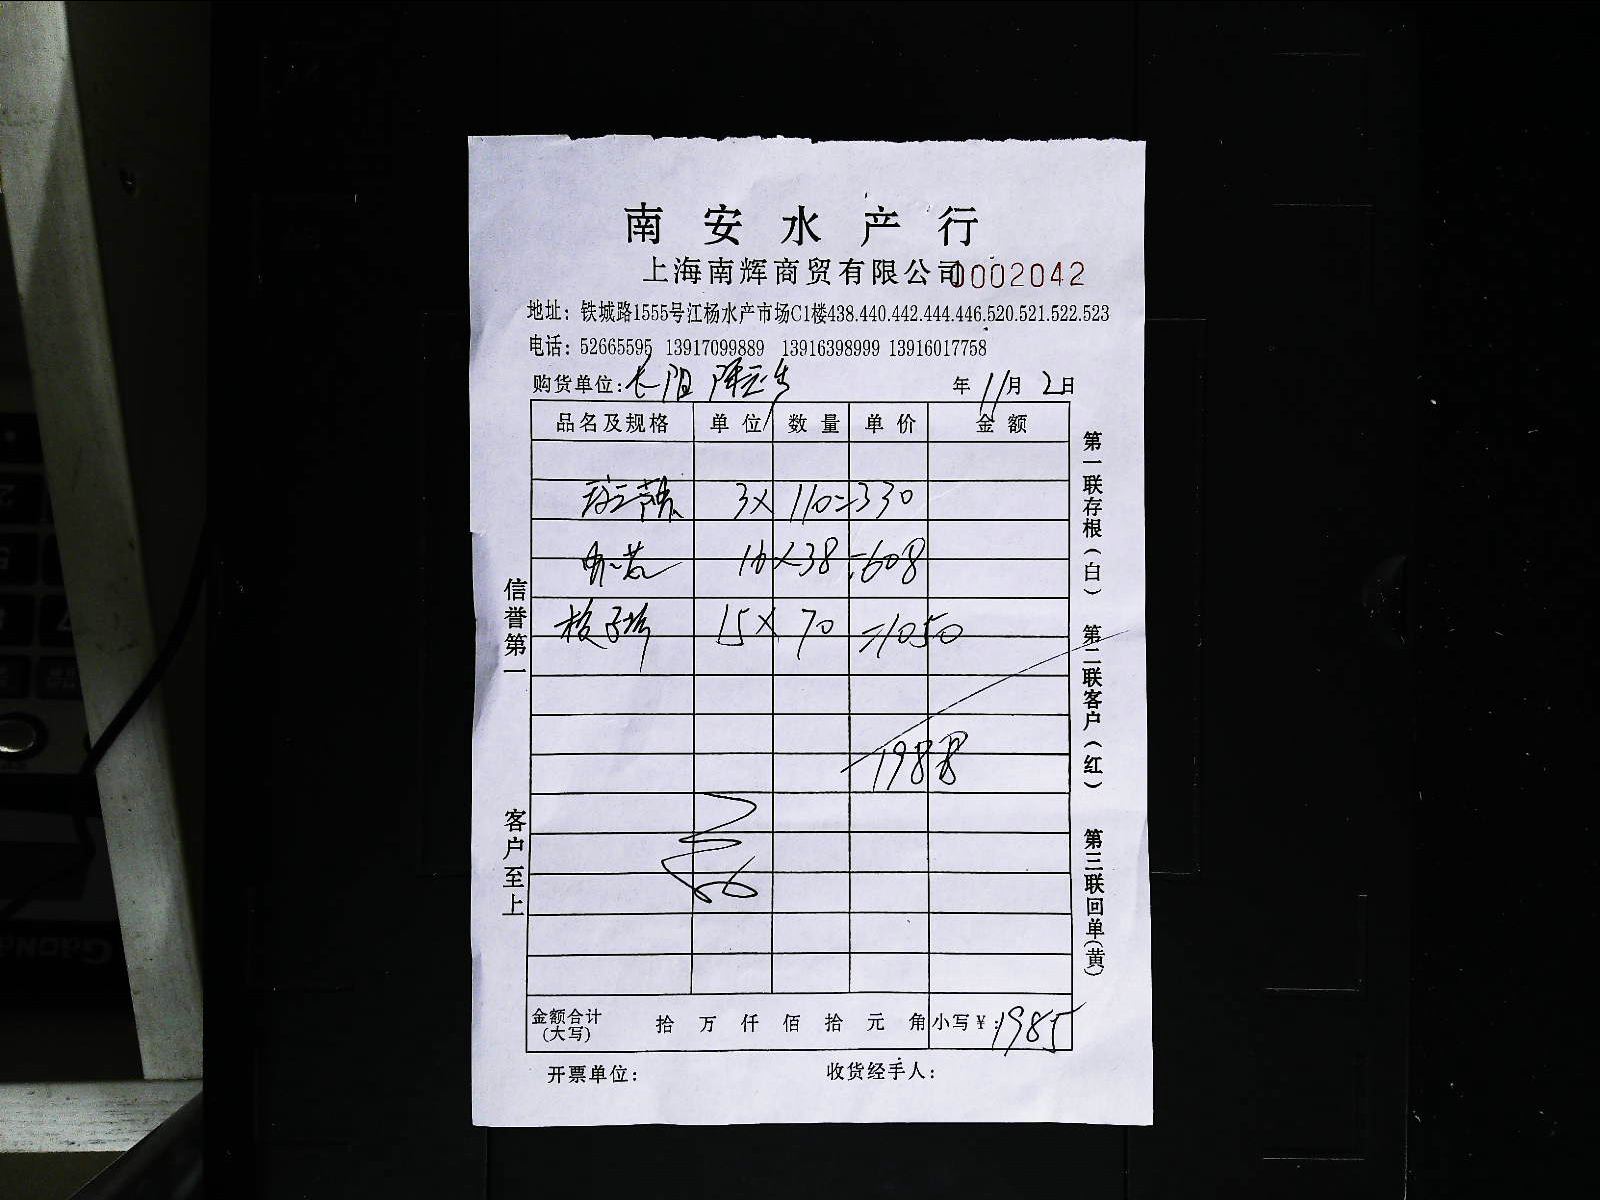 南安水产行
上海南辉商贸有限公司 0002042
地址：铁城路1555号江杨水产市场C1楼438.440.442.444.446.520.521.522.523
电话：52665595 13917099889 13916398999 13916017758
购货单位： 年 11月 2日
品名及规格 单位 数量 单价 金额
3× 110=330
16×38=608
15×70=1050
1988
金额合计(大写) 拾 万 仟 佰 拾 元 角 小写￥：1985
开票单位： 收货经手人：
信誉第一 客户至上
第一联存根(白) 第二联客户(红) 第三联回单(黄)